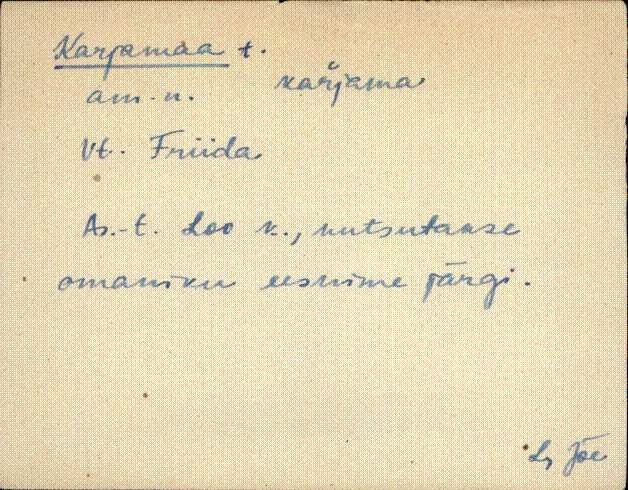 Karjamaa t.
am. n. kaŕjama
Vt. Friida
As.-t. Loo k., kutsutakse
omaniku eesnime järgi.
Lg Jõe